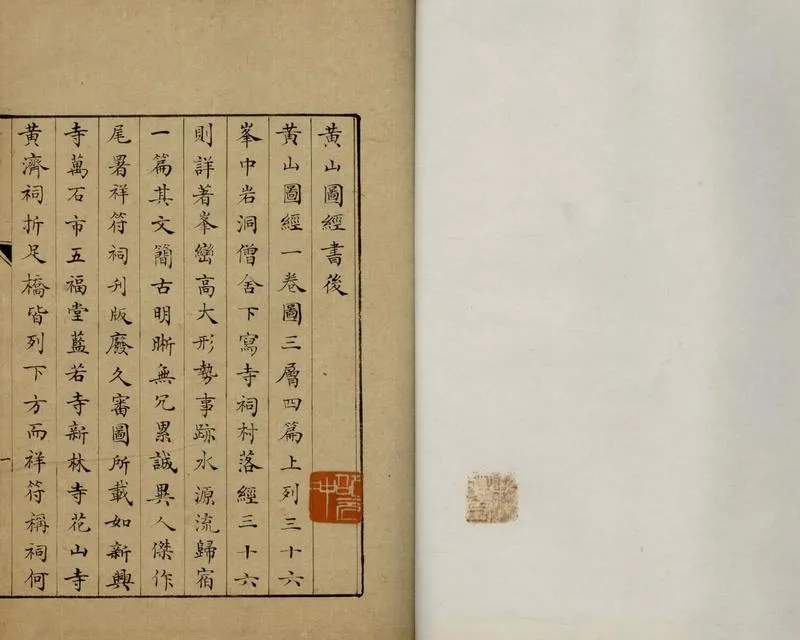 黃山圖經書後
黃山圖經一卷圖三層四篇上列三十六
峯中岩洞僧舍下寫寺祠村落經三十六
則詳著峯巒高大形勢事跡水源流歸宿
一篇其文簡古明晰無冗累誠異人傑作
尾署祥符祠刋版廢久審圖所載如新興
寺萬石市五福堂藍若寺新林寺花山寺
黃濟祠折足橋皆列下方而祥符稱祠何